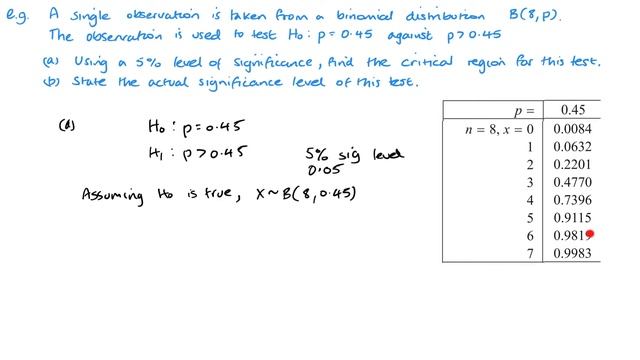 e.g. A single observation is taken from a binomial distribution B(8,p).
The observation is used to test H₀: p=0.45 against p>0.45
(a) Using a 5% level of significance, find the critical region for this test.
(b) State the actual significance level of this test.
(a) H₀ : p=0.45
H₁ : p>0.45 5% sig level
0.05
Assuming H₀ is true, X~B(8,0.45)
p = 0.45
n = 8, x = 0 0.0084
1 0.0632
2 0.2201
3 0.4770
4 0.7396
5 0.9115
6 0.9819
7 0.9983